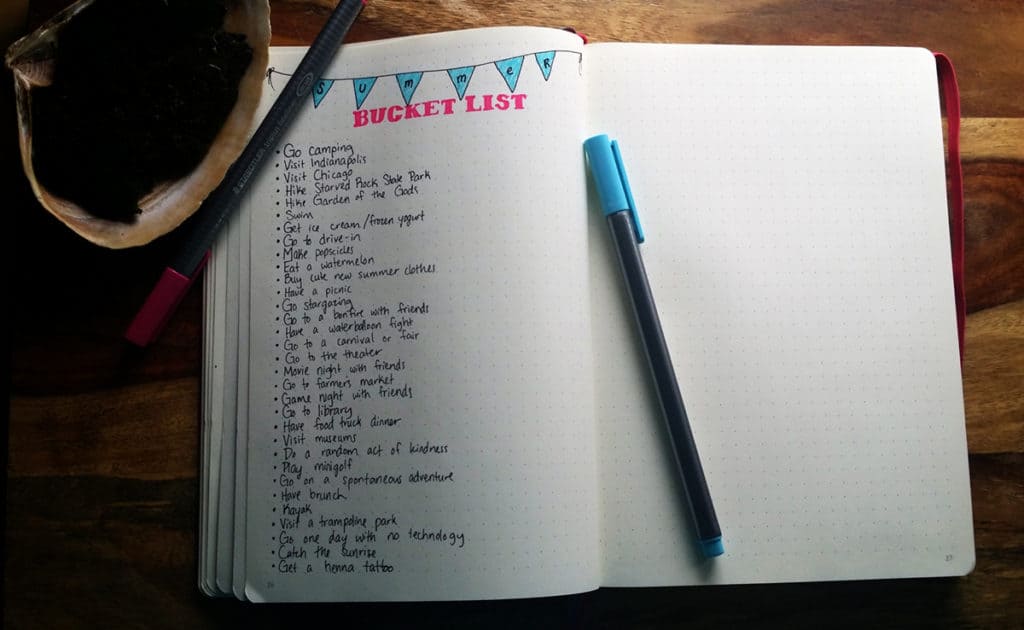 SUMMER
BUCKET LIST
• Go camping
• Visit Indianapolis
• Visit Chicago
• Hike Starved Rock State Park
• Hike Garden of the Gods
• Swim
• Get ice cream/frozen yogurt
• Go to drive-in
• Make popscicles
• Eat a watermelon
• Buy cute new summer clothes
• Have a picnic
• Go stargazing
• Go to a bonfire with friends
• Have a waterballoon fight
• Go to a carnival or fair
• Go to the theater
• Movie night with friends
• Go to farmers market
• Game night with friends
• Go to library
• Have food truck dinner
• Visit museums
• Do a random act of kindness
• Play minigolf
• Go on a spontaneous adventure
• Have brunch
• Kayak
• Visit a trampoline park
• Go one day with no technology
• Catch the sunrise
• Get a henna tattoo